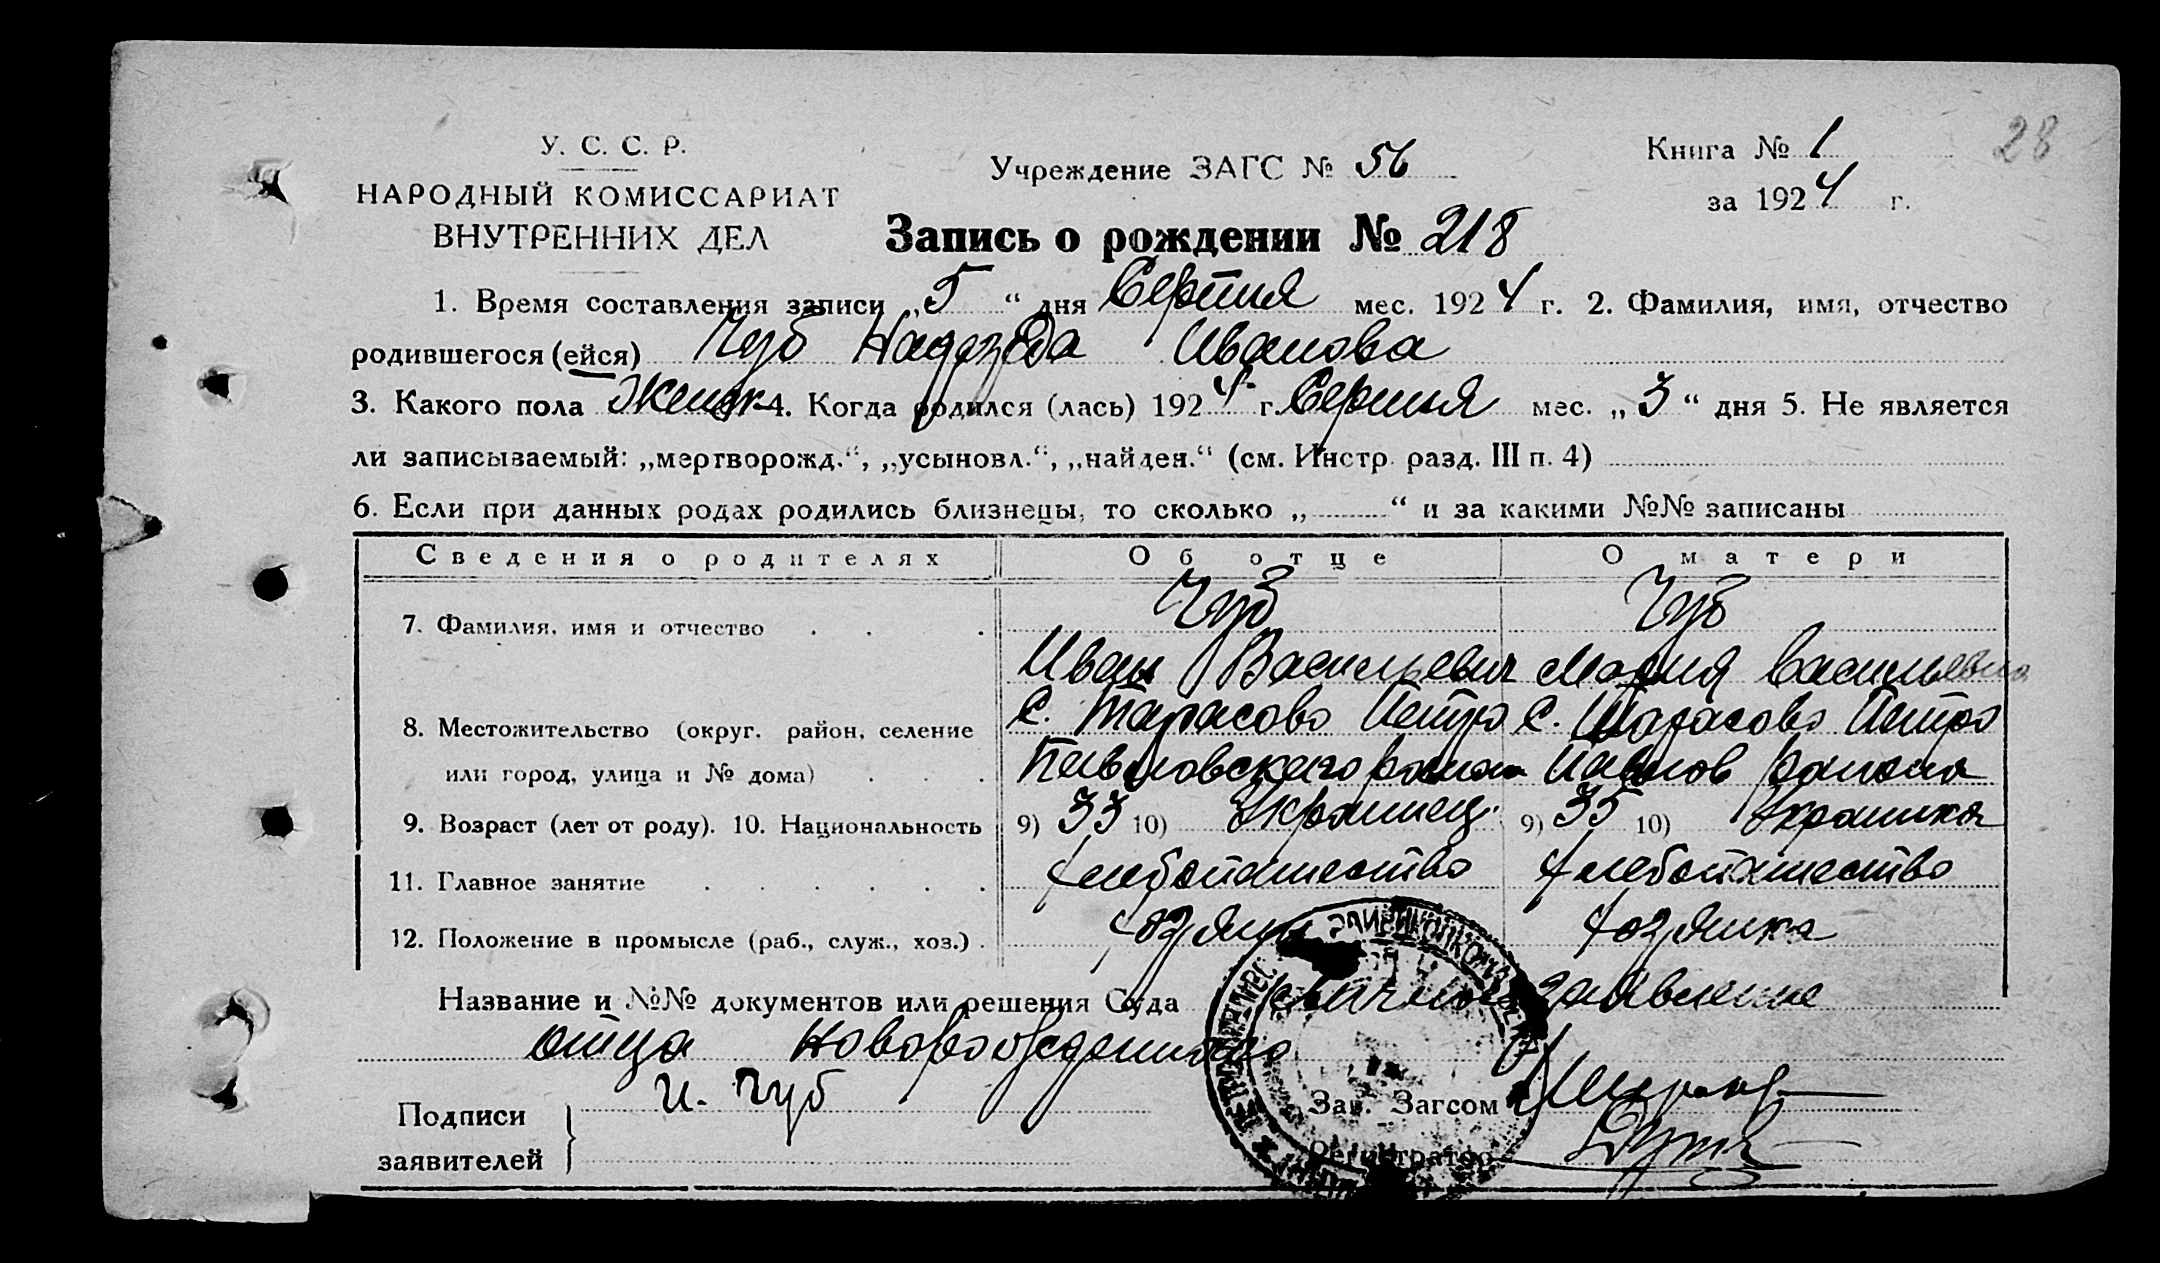 28
У. С. С. Р.
НАРОДНЫЙ КОМИССАРИАТ
ВНУТРЕННИХ ДЕЛ
Учреждение ЗАГС № 56
Книга № 1
за 1924 г.
Запись о рождении № 218
1. Время составления записи „5“ дня Серпня мес. 1924 г. 2. Фамилия, имя, отчество
родившегося (ейся) Чуб Надежда Иванова
3. Какого пола Женск 4. Когда родился (лась) 1924 г. Серпня мес. „3“ дня 5. Не является
ли записываемый: „мертворожд.“, „усыновл.“, „найден.“ (см. Инстр. разд. III п. 4)
6. Если при данных родах родились близнецы, то сколько „ “ и за какими №№ записаны
Сведения о родителях Об отце О матери
7. Фамилия, имя и отчество Чуб Чуб
Иван Васильевич Мария Васильевна
8. Местожительство (округ. район, селение С. Тарасово Петро С. Тарасово Петро
или город, улица и № дома) Павловского района Павлов района
9. Возраст (лет от роду). 10. Национальность 9) 33 10) Украинец 9) 35 10) Украинка
11. Главное занятие хлебопашество хлебопашество
12. Положение в промысле (раб., служ., хоз.) хозяин хозяйка
Название и №№ документов или решения Суда заявление
отца новорожденного
Подписи заявителей И. Чуб
Зав. Загсом
Регистратор